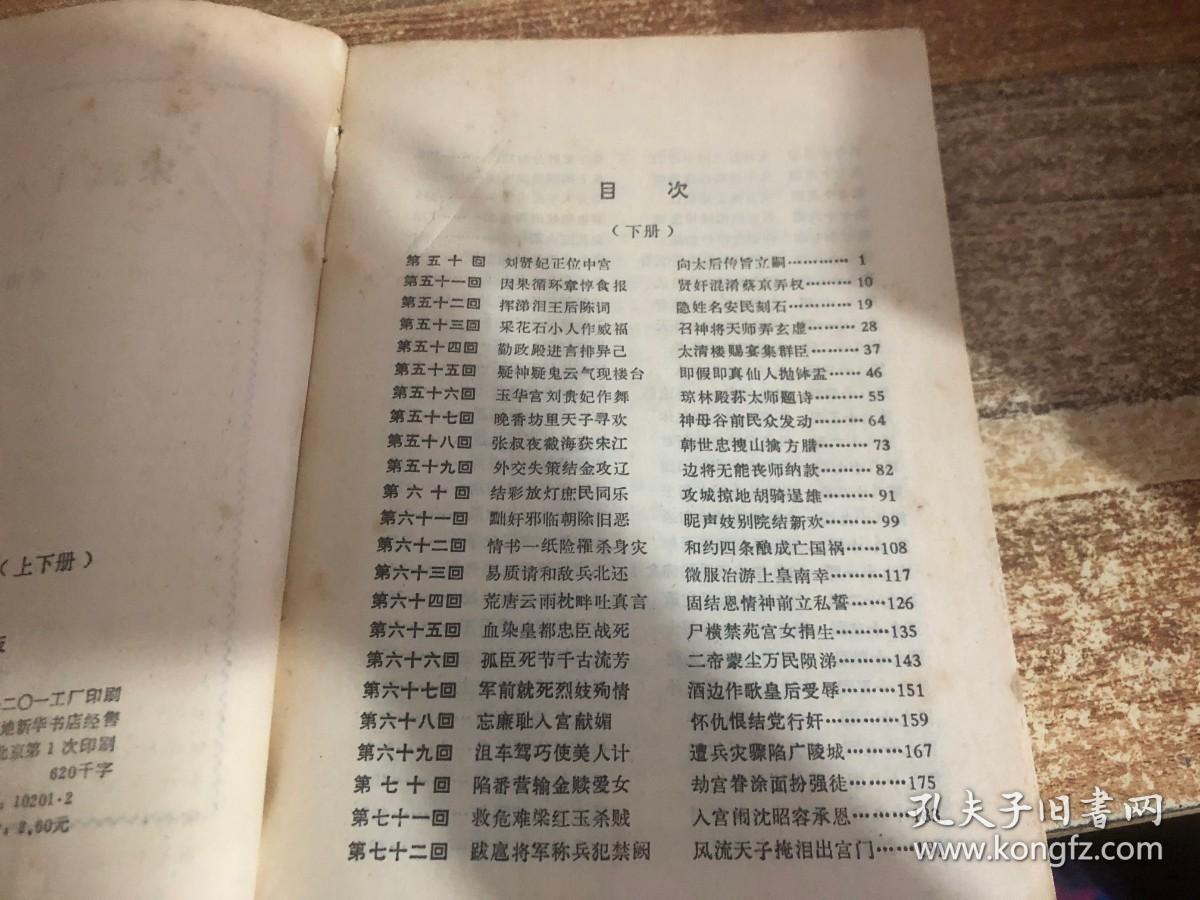 （上下册）
二〇一工厂印刷
地新华书店经售
北京第1次印刷
620千字
10201·2
2.60元
目 次
（下册）
第五十回 刘贤妃正位中宫 向太后传旨立嗣………… 1
第五十一回 因果循环章惇食报 贤奸混淆蔡京弄权……… 10
第五十二回 挥涕泪王后陈词 隐姓名安民刻石……… 19
第五十三回 采花石小人作威福 召神将天师弄玄虚……… 28
第五十四回 勤政殿进言排异己 太清楼赐宴集群臣……… 37
第五十五回 疑神疑鬼云气现楼台 即假即真仙人抛钵盂…… 46
第五十六回 玉华宫刘贵妃作舞 琼林殿蔡太师题诗……… 55
第五十七回 晚香坊里天子寻欢 神母谷前民众发动……… 64
第五十八回 张叔夜截海获宋江 韩世忠搜山擒方腊……… 73
第五十九回 外交失策结金攻辽 边将无能丧师纳款……… 82
第六十回 结彩放灯庶民同乐 攻城掠地胡骑逞雄……… 91
第六十一回 黜奸邪临朝除旧恶 昵声妓别院结新欢……… 99
第六十二回 情书一纸险罹杀身灾 和约四条酿成亡国祸……108
第六十三回 易质请和敌兵北还 微服冶游上皇南幸………117
第六十四回 荒唐云雨枕畔吐真言 固结恩情神前立私誓……126
第六十五回 血染皇都忠臣战死 尸横禁苑宫女捐生………135
第六十六回 孤臣死节千古流芳 二帝蒙尘万民陨涕………143
第六十七回 军前就死烈妓殉情 酒边作歌皇后受辱………151
第六十八回 忘廉耻入宫献媚 怀仇恨结党行奸………159
第六十九回 沮车驾巧使美人计 遭兵灾骤陷广陵城………167
第七十回 陷番营输金赎爱女 劫宫眷涂面扮强徒………175
第七十一回 救危难梁红玉杀贼 入宫闱沈昭容承恩………
第七十二回 跋扈将军称兵犯禁阙 风流天子掩泪出宫门……
孔夫子旧书网
www.kongfz.com